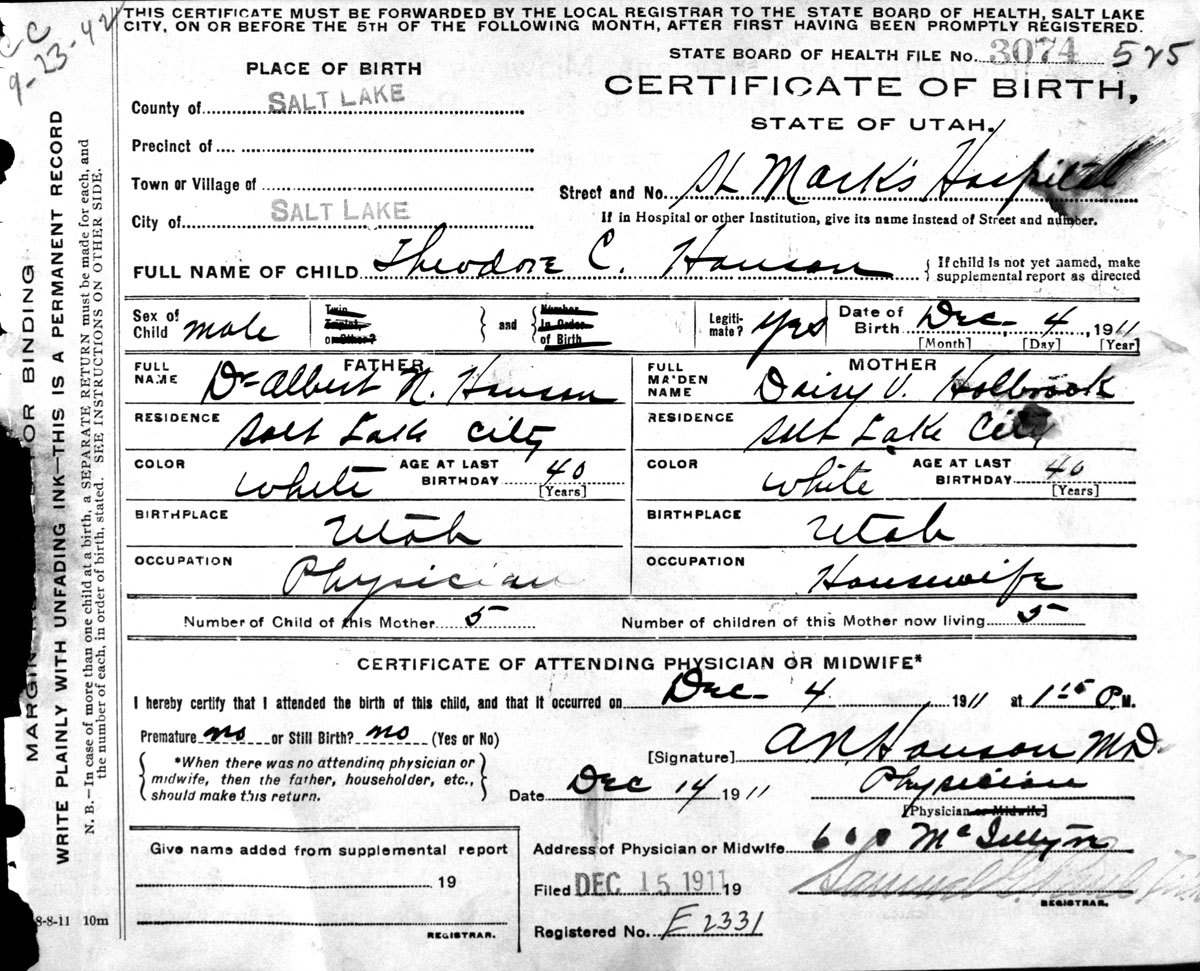 CC
9-23-42
THIS CERTIFICATE MUST BE FORWARDED BY THE LOCAL REGISTRAR TO THE STATE BOARD OF HEALTH, SALT LAKE
CITY, ON OR BEFORE THE 5TH OF THE FOLLOWING MONTH, AFTER FIRST HAVING BEEN PROMPTLY REGISTERED.
STATE BOARD OF HEALTH FILE No. 3074 525
PLACE OF BIRTH
CERTIFICATE OF BIRTH,
STATE OF UTAH.
County of SALT LAKE
Precinct of
Town or Village of
Street and No. St Mark's Hospital
If in Hospital or other Institution, give its name instead of Street and number.
City of SALT LAKE
FULL NAME OF CHILD Theodore C. Hanson
{ If child is not yet named, make
supplemental report as directed
Sex of
Child male
Twin,
Triplet,
or Other?
} and {
Number
In Order
of Birth
Legiti-
mate? yes
Date of
Birth Dec- 4, 1911
[Month] [Day] [Year]
FATHER
FULL
NAME Dr Albert N. Hanson
RESIDENCE Salt Lake City
COLOR White AGE AT LAST
BIRTHDAY 40
[Years]
BIRTHPLACE Utah
OCCUPATION Physician
MOTHER
FULL
MAIDEN
NAME Daisy V. Holbrook
RESIDENCE Salt Lake City
COLOR White AGE AT LAST
BIRTHDAY 40
[Years]
BIRTHPLACE Utah
OCCUPATION Housewife
Number of Child of this Mother 5 Number of children of this Mother now living 5
CERTIFICATE OF ATTENDING PHYSICIAN OR MIDWIFE*
I hereby certify that I attended the birth of this child, and that it occurred on Dec- 4 1911 at 1 15 P M.
Premature no or Still Birth? no (Yes or No)
{ *When there was no attending physician or
midwife, then the father, householder, etc.,
should make this return. }
[Signature] A N Hanson MD
Date Dec 14 1911 Physician
[Physician or Midwife]
Address of Physician or Midwife 600 McIntyre
Filed DEC 15 1911 19
REGISTRAR.
Registered No. E 2331
Give name added from supplemental report
19
REGISTRAR.
8-8-11 10m
MARGIN FOR BINDING
WRITE PLAINLY WITH UNFADING INK—THIS IS A PERMANENT RECORD
N. B.—In case of more than one child at a birth, a SEPARATE RETURN must be made for each, and
the number of each, in order of birth, stated. SEE INSTRUCTIONS ON OTHER SIDE.